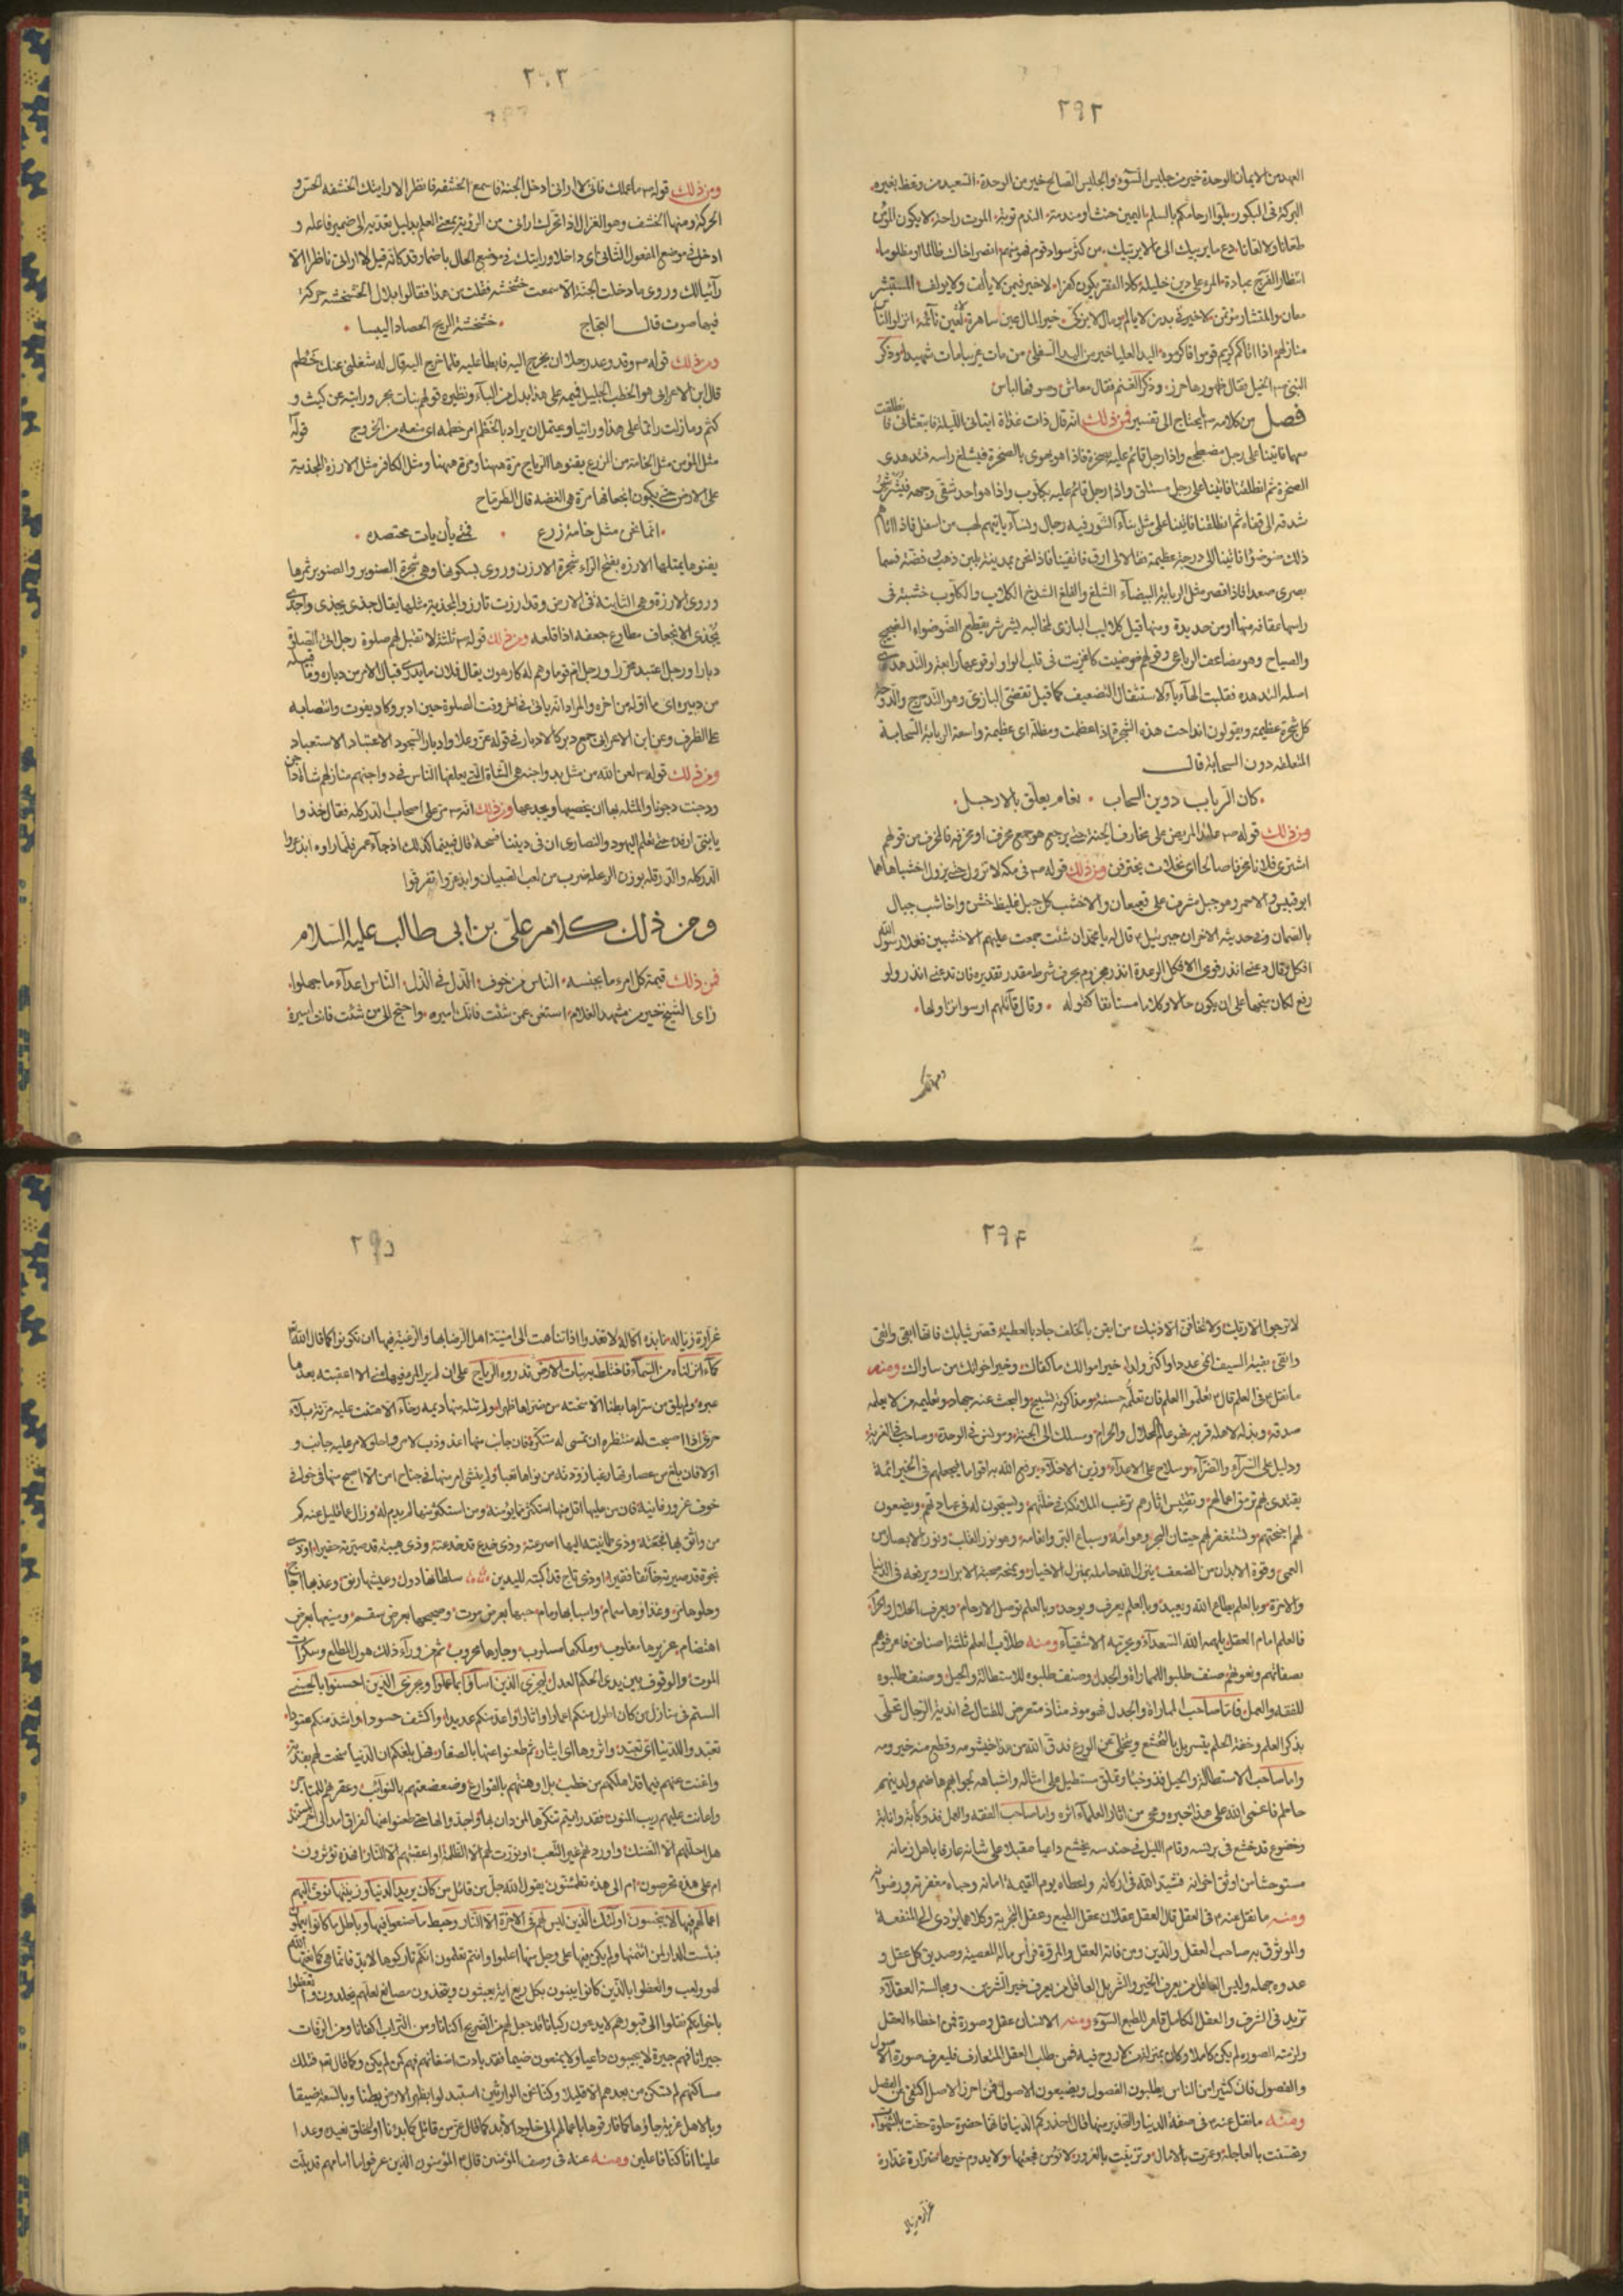 ٢٩٢
العهد من الايمان الوحدة خير من جليس السوء والجليس الصالح خير من الوحدة السعيد من وعظ بغيره
البركة في البكور بلوا ارحامكم بالسلم اليمين حنث او مندمة الندم توبة الموت راحة لا يكون المؤمن
طعانا ولا لعانا دع ما يريبك الى ما لا يريبك من كثر سواد قوم فهو منهم انصر اخاك ظالما او مظلوما
انتظار الفرج عبادة المرء على دين خليله كاد الفقر يكون كفرا لا خير فيمن لا يألف ولا يؤلف المستشير
معان والمستشار مؤتمن لا خير في بدن لا يألم ومال لا يزكى خير المال عين ساهرة لعين نائمة انزلوا الناس
منازلهم اذا اتاكم كريم قوم فاكرموه اليد العليا خير من اليد السفلى من مات غريبا مات شهيدا وذكر
النبي الخيل فقال ظهورها حرز وذكر الغنم فقال معاش وصوفها لباس
فصل من كلامه يحتاج الى تفسير فمن ذلك انه قال ذات غداة اتياني الليلة فابتعثاني فانطلقت
معهما فاتينا على رجل مضطجع واذا رجل قائم عليه بصخرة فاذا هو يهوى بالصخرة فيثلغ راسه فتدهدى
الصخرة ثم انطلقنا فاتينا على رجل مستلق واذا رجل قائم عليه بكلوب واذا هو ياخذ شقي وجهه فيشرشر
شدقه الى قفاه ثم انطلقنا فاتينا على مثل بناء التنور فيه رجال ونساء ياتيهم لهب من اسفل فاذا اتاهم
ذلك ضوضوا فانتهينا الى درجة عظيمة فقالا لي ارق فارتقينا فاذا نحن بمدينة بلبن ذهب وفضة فسما
بصرى صعدا فاذا قصر مثل الربابة البيضاء الثلغ والفلغ الشدخ الكلاب والكلوب خشبة في
راسها عقافة منها او من حديدة ومنها قيل كلاليب البازى لمخالبه يشرشر يقطع الضوضاء الضجيج
والصياح وهو مضاعف الرباعي وقولهم ضوضيت كاغزيت في قلب الواو لوقوعها رابعة والتدهدى
اصله التدهده فقلبت الهاء ياء لاستثقال التضعيف كما قيل تقضى البازى وهو التدحرج والدوحة
كل شجرة عظيمة ويقولون انداحت هذه الشجرة اذا عظمت ومظلة اى عظيمة واسعة الربابة السحابة
المتعلقة دون السحابة قال
كان الرباب دوين السحاب نعام يعلق بالارجل
ومن ذلك قوله عائد المريض على مخارف الجنة حتى يرجع هو جمع مخرف او مخرفة فالمخرف من قولهم
اشترى فلان مخرفا صالحا اى نخلات يخترفن ومن ذلك قوله في مكة لا تزول حتى يزول اخشباها هما
ابو قبيس والاحمر وهو جبل مشرف على قعيقعان والاخشب كل جبل غليظ خشن واخاشب جبال
بالصمان وفي حديثه الاخر ان جبرئيل قال له يا محمد ان شئت جمعت عليهم الاخشبين فعلا رسول الله
افكل وقال دعني انذر قومى الافكل الرعدة انذر مجزوم بحرف شرط مقدر تقديره فان تدعني انذر ولو
رفع لكان متجها على ان يكون حالا وكلاما مستانفا كقوله وقال قائلهم ارسوا نزاولها
ومن ذلك قوله ما عملك فاني لا اراني ادخل الجنة فاسمع الخشفة فانظر الا رايتك الخشفة الحس و
الحركة ومنها الخشف وهو الغزال اذا تحرك اراني من الرؤية بمعنى العلم بدليل تعديه الى ضمير فاعله و
ادخل في موضع المفعول الثاني اى داخلا ورايتك في موضع الحال باضمار قد كانه قيل لا اراني ناظرا الا
رائيا لك وروى ما دخلت الجنة الا سمعت خشخشة فقلت من هذا فقالوا بلال الخشخشة حركة
فيها صوت قال العجاج خشخشة الريح الحصاد اليبسا
ومن ذلك قوله وقد وعد رجلا ان يخرج اليه فابطأ عليه فلما خرج اليه قال له شغلني عنك خطم
قال ابن الاعرابي هو الخطب الجليل فميمه على هذا بدل من الباء ونظيره قولهم بنات مخر ورايته عن كثب و
كثم وما زلت راتما على هذا وراتبا ويحتمل ان يراد بالخطم امر خطمه اى منعه من الخروج قوله
مثل المؤمن مثل الخامة من الزرع يفئوها الرياح مرة ههنا ومرة ههنا ومثل الكافر مثل الارزة المجذية
على الارض حتى يكون انجعافها مرة هي الغضة قال الطرماح
انما نحن مثل خامة زرع فمتى يأن يأت محتصده
يفئوها يميلها الارزة بفتح الراء شجرة الارزن وروى بسكونها وهي شجرة الصنوبر والصنوبر ثمرها
وروى الارزة وهي الثابتة في الارض وقد ارزت تارز والمجذية مثلها يقال جذى يجذى واجذى
يجذى الانجعاف مطاوع جعفه اذا قلعه ومن ذلك قوله ثلثة لا تقبل لهم صلوة رجل اتى الصلوة
دبارا ورجل اعتبد محررا ورجل ام قوما وهم له كارهون يقال فلان ما يدرى قبال الامر من دباره وما قبيله
من دبيره اى ما اوله من اخره والمراد انه ياتي في اخر وقت الصلوة حين ادبر وكاد يفوت وانتصابه
على الظرف وعن ابن الاعرابي جمع دبر كالادبار في قوله عز وعلا وادبار السجود الاعتباد الاستعباد
ومن ذلك قوله لعن الله من مثل بدواجنه هي الشاة التي يعلفها الناس في دواجنهم منازلهم شاة داجن
ودجنت دجونا والمثلة بها ان يخصيها ويجدعها ومن ذلك انه مر على اصحاب الدركلة فقال خذوا
يا بني ارفدة حتى تعلم اليهود والنصارى ان في ديننا فسحة قال فبينما كذلك اذ جاء عمر فلما راوه ابذعروا
الدركلة والدرقلة بوزن الرعبلة ضرب من لعب الصبيان وابذعروا تفرقوا
ومن ذلك كلام على بن ابى طالب عليه السلام
فمن ذلك قيمة كل امرء ما يحسنه الناس من خوف الذل في الذل الناس اعداء ما جهلوا
راى الشيخ خير من مشهد الغلام استغن عمن شئت فانك نظيره واحتج الى من شئت فانت اسيره
٢٩٤
لا ترجوا الا ربك ولا تخافن الا ذنبك من ايقن بالخلف جاد بالعطية قصر ثيابك فانها ابقى وانقى
واتقى بقية السيف انمى عددا واكثر ولدا خير اموالك ما كفاك وخير اخوانك من ساواك ومنه
ما نقل في العلم قال تعلموا العلم فان تعلمه حسنة ومذاكرته تسبيح والبحث عنه جهاد وتعليمه من لا يعلمه
صدقة وبذله لاهله قربة فهو معالم الحلال والحرام ومسالك الى الجنة ومونس في الوحدة وصاحب في الغربة
ودليل على السراء والضراء وسلاح على الاعداء وزين الاخلاء يرفع الله به اقواما ليجعلهم في الخير ائمة
يقتدى بهم ترمق اعمالهم وتقتبس اثارهم ترغب الملائكة في خلتهم ويسبحون له في عبادتهم ويضعون
لهم اجنحتهم ويستغفر لهم حيتان البحر وهوامه وسباع البر وانعامه وهو نور القلب ونور الابصار من
العمى وقوة الابدان من الضعف ينزل الله حامله منزل الاخيار ويمنحه صحبة الابرار ويرفعه في الدنيا
والاخرة وبالعلم يطاع الله ويعبد وبالعلم يعرف ويوحد وبالعلم توصل الارحام ويعرف الحلال والحرام
فالعلم امام العقل يلهمه الله السعداء ويحرمه الاشقياء ومنه طلاب العلم ثلثة اصناف فاعرفوهم
بصفاتهم ونعوتهم صنف طلبوا للمماراة والجدل وصنف طلبوه للاستطالة والحيل وصنف طلبوه
للفقه والعمل فاما صاحب المماراة والجدل فموذ متاذ متعرض للمقال في اندية الرجال تحلى
بذكر العلم وخفة الحلم يتسربل بالتخشع وتخلى عن الورع فدق الله من هذا خيشومه وقطع منه حيزومه
واما صاحب الاستطالة والحيل فذو خب وتملق مستطيل على امثاله واشباهه لحلوائهم هاضم ولدينهم
حاطم فاعمى الله على هذا خبره ومحى من اثار العلماء اثره واما صاحب الفقه والعمل فذو كأبة وانابة
وخضوع قد خشع في برنسه وقام الليل في حندسه يخشع داعيا مقبلا على شانه عارفا باهل زمانه
مستوحشا من اوثق اخوانه فشيد الله في اركانه واعطاه يوم القيمة امانه وحباه مغفرته ورضوانه
ومنه ما نقل عنه في العقل قال العقل عقلان عقل الطبع وعقل التجربة وكلاهما يؤدى الى المنفعة
والموثوق به صاحب العقل والدين ومن فاته العقل والمروة فراس ماله المعصية وصديق كل عقله و
عدوه جهله وليس العاقل من يعرف الخير والشر بل العاقل من يعرف خير الشرين ومجالسة العقلاء
تزيد في الشرف والعقل الكامل قاهر للطبع السوء ومنه الانسان عقل وصورة فمن اخطاء العقل
ولزمته الصورة لم يكن كاملا وكان بمنزلة من لا روح فيه فمن طلب العقل المتعارف فليعرف صورة الاصول
والفصول فان كثيرا من الناس يطلبون الفصول ويضيعون الاصول فمن احرز الاصل اكتفى عن الفصل
ومنه ما نقل عنه في صفة الدنيا والتحذير منها قال احذركم الدنيا فانها خضرة حلوة حفت بالشهوات
وتحببت بالعاجلة وعمرت بالامال وتزينت بالغرور لا تؤمن فجعتها ولا يدوم خيرها ضرارة غدارة
٢٩٥
غرارة زيالة نابذة اكالة لا تعدوا اذا تناهت الى امنية اهل الرضا بها والرغبة فيها ان تكونوا كما قال الله
كماء انزلناه من السماء فاختلط به نبات الارض تذروه الرياح على ان امرءا لم يكن فيها في حبرة الا اعقبته بعدها
عبرة ولم يلق من سرائها بطنا الا منحته من ضرائها ظهرا ولم تنله منها ديمة رخاء الا هتنت عليه مزنة بلاء
حرى اذا اصبحت له منتظرة ان تمسى له متنكرة فان جانب منها اعذوذب لامرء واحلولى امر عليه جانب و
خوف غرور فانية فان من عليها اقل منها استكثر مما يؤمنه ومن استكثر منها لم يدم له وزال عما قليل عنه كم
من واثق بها فجعته وذى طمأنينة اليها صرعته وذى خدع قد خدعته وذى هيبة قد صيرته حقيرا وذى
نخوة قد صيرته خائفا فقيرا وذى تاج قد اكبته لليدين سلطانها دول وعيشها رنق وعذبها اجاج
وحلوها مر وغذاؤها سمام واسبابها رمام حيها بعرض موت وصحيحها بعرض سقم ومنيعها بعرض
اهتضام عزيزها مغلوب وملكها مسلوب وجارها محروب ثم من وراء ذلك هول المطلع وسكرات
الموت والوقوف بين يدى الحكم العدل ليجزى الذين اساؤا بما عملوا ويجزى الذين احسنوا بالحسنى
الستم في منازل من كان اطول منكم اعمارا واثارا واعد منكم عديدا واكثف جنودا واشد منكم عنودا
تعبدوا للدنيا اى تعبد واثروها اى ايثار ثم ظعنوا عنها بالصغار فهل بلغكم ان الدنيا سخت لهم بفدية
واغنت عنهم فيما قد اهلكهم من خطب بل اوهنتهم بالقوارع وضعضعتهم بالنوائب وعقرتهم للمناخر
واعانت عليهم ريب المنون فقد رايتم تنكرها لمن دان لها واخلد اليها حتى ظعنوا عنها لفراق امد الى اخر المسند
هل احلتهم الا الضنك او زودتهم غير التعب او نورت لهم الا الظلمة او اعقبتهم الا النار افهذه تؤثرون
ام على هذه تحرصون ام الى هذه تطمئنون يقول الله جل من قائل من كان يريد الحيوة الدنيا وزينتها نوف اليهم
اعمالهم فيها وهم فيها لا يبخسون اولئك الذين ليس لهم في الاخرة الا النار وحبط ما صنعوا فيها وباطل ما كانوا يعملون
فبئست الدار لمن ائتمنها ولم يكن فيها على وجل منها اعلموا وانتم تعلمون انكم تاركوها لا بد فانما هي كما نعتها الله
لهو ولعب واتعظوا بالذين كانوا يبنون بكل ريع اية يعبثون ويتخذون مصانع لعلهم يخلدون واتعظوا
باخوانكم نقلوا الى قبورهم لا يدعون ركبانا قد جعل لهم من الضريح اكنانا ومن التراب اكفانا ومن الرفات
جيرانا فهم جيرة لا يجيبون داعيا ولا يمنعون ضيما فقد بادت اضغانهم فهم كمن لم يكن وكما قال تعالى فتلك
مساكنهم لم تسكن من بعدهم الا قليلا وكنا نحن الوارثين استبدلوا بظهر الارض بطنا وبالسعة ضيقا
وبالاهل غربة جاؤها كما فارقوها باعمالهم الى خلود الابد كما قال عز من قائل كما بدانا اول خلق نعيده وعدا
علينا انا كنا فاعلين ومنه عنه في وصف المؤمنين قال المؤمنون الذين عرفوا ما امامهم قد بلت